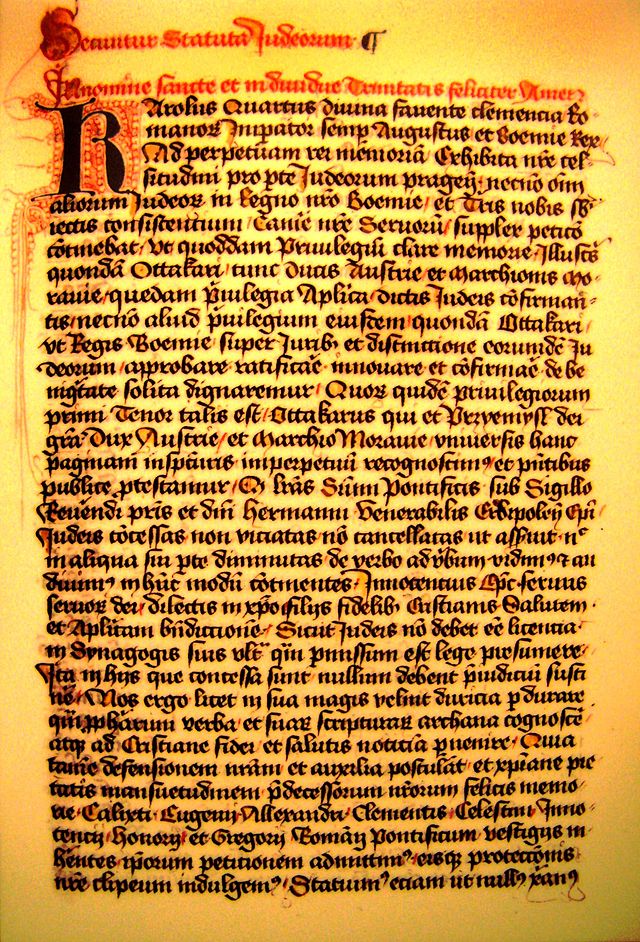 Secuntur Statuta Judeorum ¶
In nomine sancte et individue Trinitatis feliciter Amen
Karolus Quartus divina favente clemencia Ro-
manoꝝ Impator semp Augustus et Boemie Rex
Ad perpetuam rei memoriā Exhibita nr̄e cel-
situdini pro pte Judeorum pragen̄ necnō om̄
aliorum Judeoꝝ in Regno nr̄o Boemie et Tris nobis sb-
iectis consistentium Cam̄e nr̄e Servorū suppler peticō
cōtinebat Vt quoddam Privilegiū clare memorie Illustr̄
quondā Ottakari tunc Ducis Austrie et Marchionis Mo-
ravie quedam p̄vilegia Aplica dictis Judeis cōfirman-
tis necnō aliud p̄vilegium eiusdem quondā Ottakari
vt Regis Boemie super Jurib et distinctione eorundē Ju
deorum approbare ratificar̄ innovare et cōfirmar̄ de be
nig̅tate solita dignaremur Quoꝝ quidē privilegiorum
primi Tenor talis est Ottakarus qui et Przemysl dei
gra Dux Austrie et Marchio Moravie vniversis hanc
paginam insp̄turis imperpetuū recognoscim⁹ et pn̄tibus
publice ptestamur Qd lr̄as Sūmi Pontificis sub Sigillo
Reuēndi pr̄is et dn̄i Hermanni Venerabilis Erbipolen̄ Ep̄i
Judeis cōcessas non viciatas nō cancellatas ut assuit nc̄
in aliqua sui pte diminutas de verbo ad v̄bum vidim⁹ et au
divim⁹ in hūc modū cōtinentes Innocentius Ep̄c servus
servoꝝ dei dilectis in xp̄o filijs fidelib Cristianis Salutem
et Ap̄licam bn̄dictionē Sicut Judeis nō debet eē licentia
in Synagogis suis vlt̄ q̄m pmissum est lege presumere
Ita in hijs que concessa sunt nullum debent p̄iudiciū susti
nē Nos ergo licet in sua magis velint duricia pdurare
q̄m pphetarum verba et suaꝝ scripturaꝝ archana cognoscē
atqꝫ ad Cristiane fidei et salutis noticiā pvenire Quia
tamē defensionem nr̄am et auxilia postulāt et xp̄iane pie
tatis mansuetudinem p̄decessorum nr̄orum felicis memo-
rie Calixti Eugenij Allexandri Clementis Celestini Inno-
tencij Honorij et Gregorij Romān Pontificum vestigijs in-
herentes ip̄orum petitionem admittim⁹ eisqꝫ protectōnis
nr̄e clipeum indulgem⁹ Statuim⁹ eciam ut null⁹ xān⁹